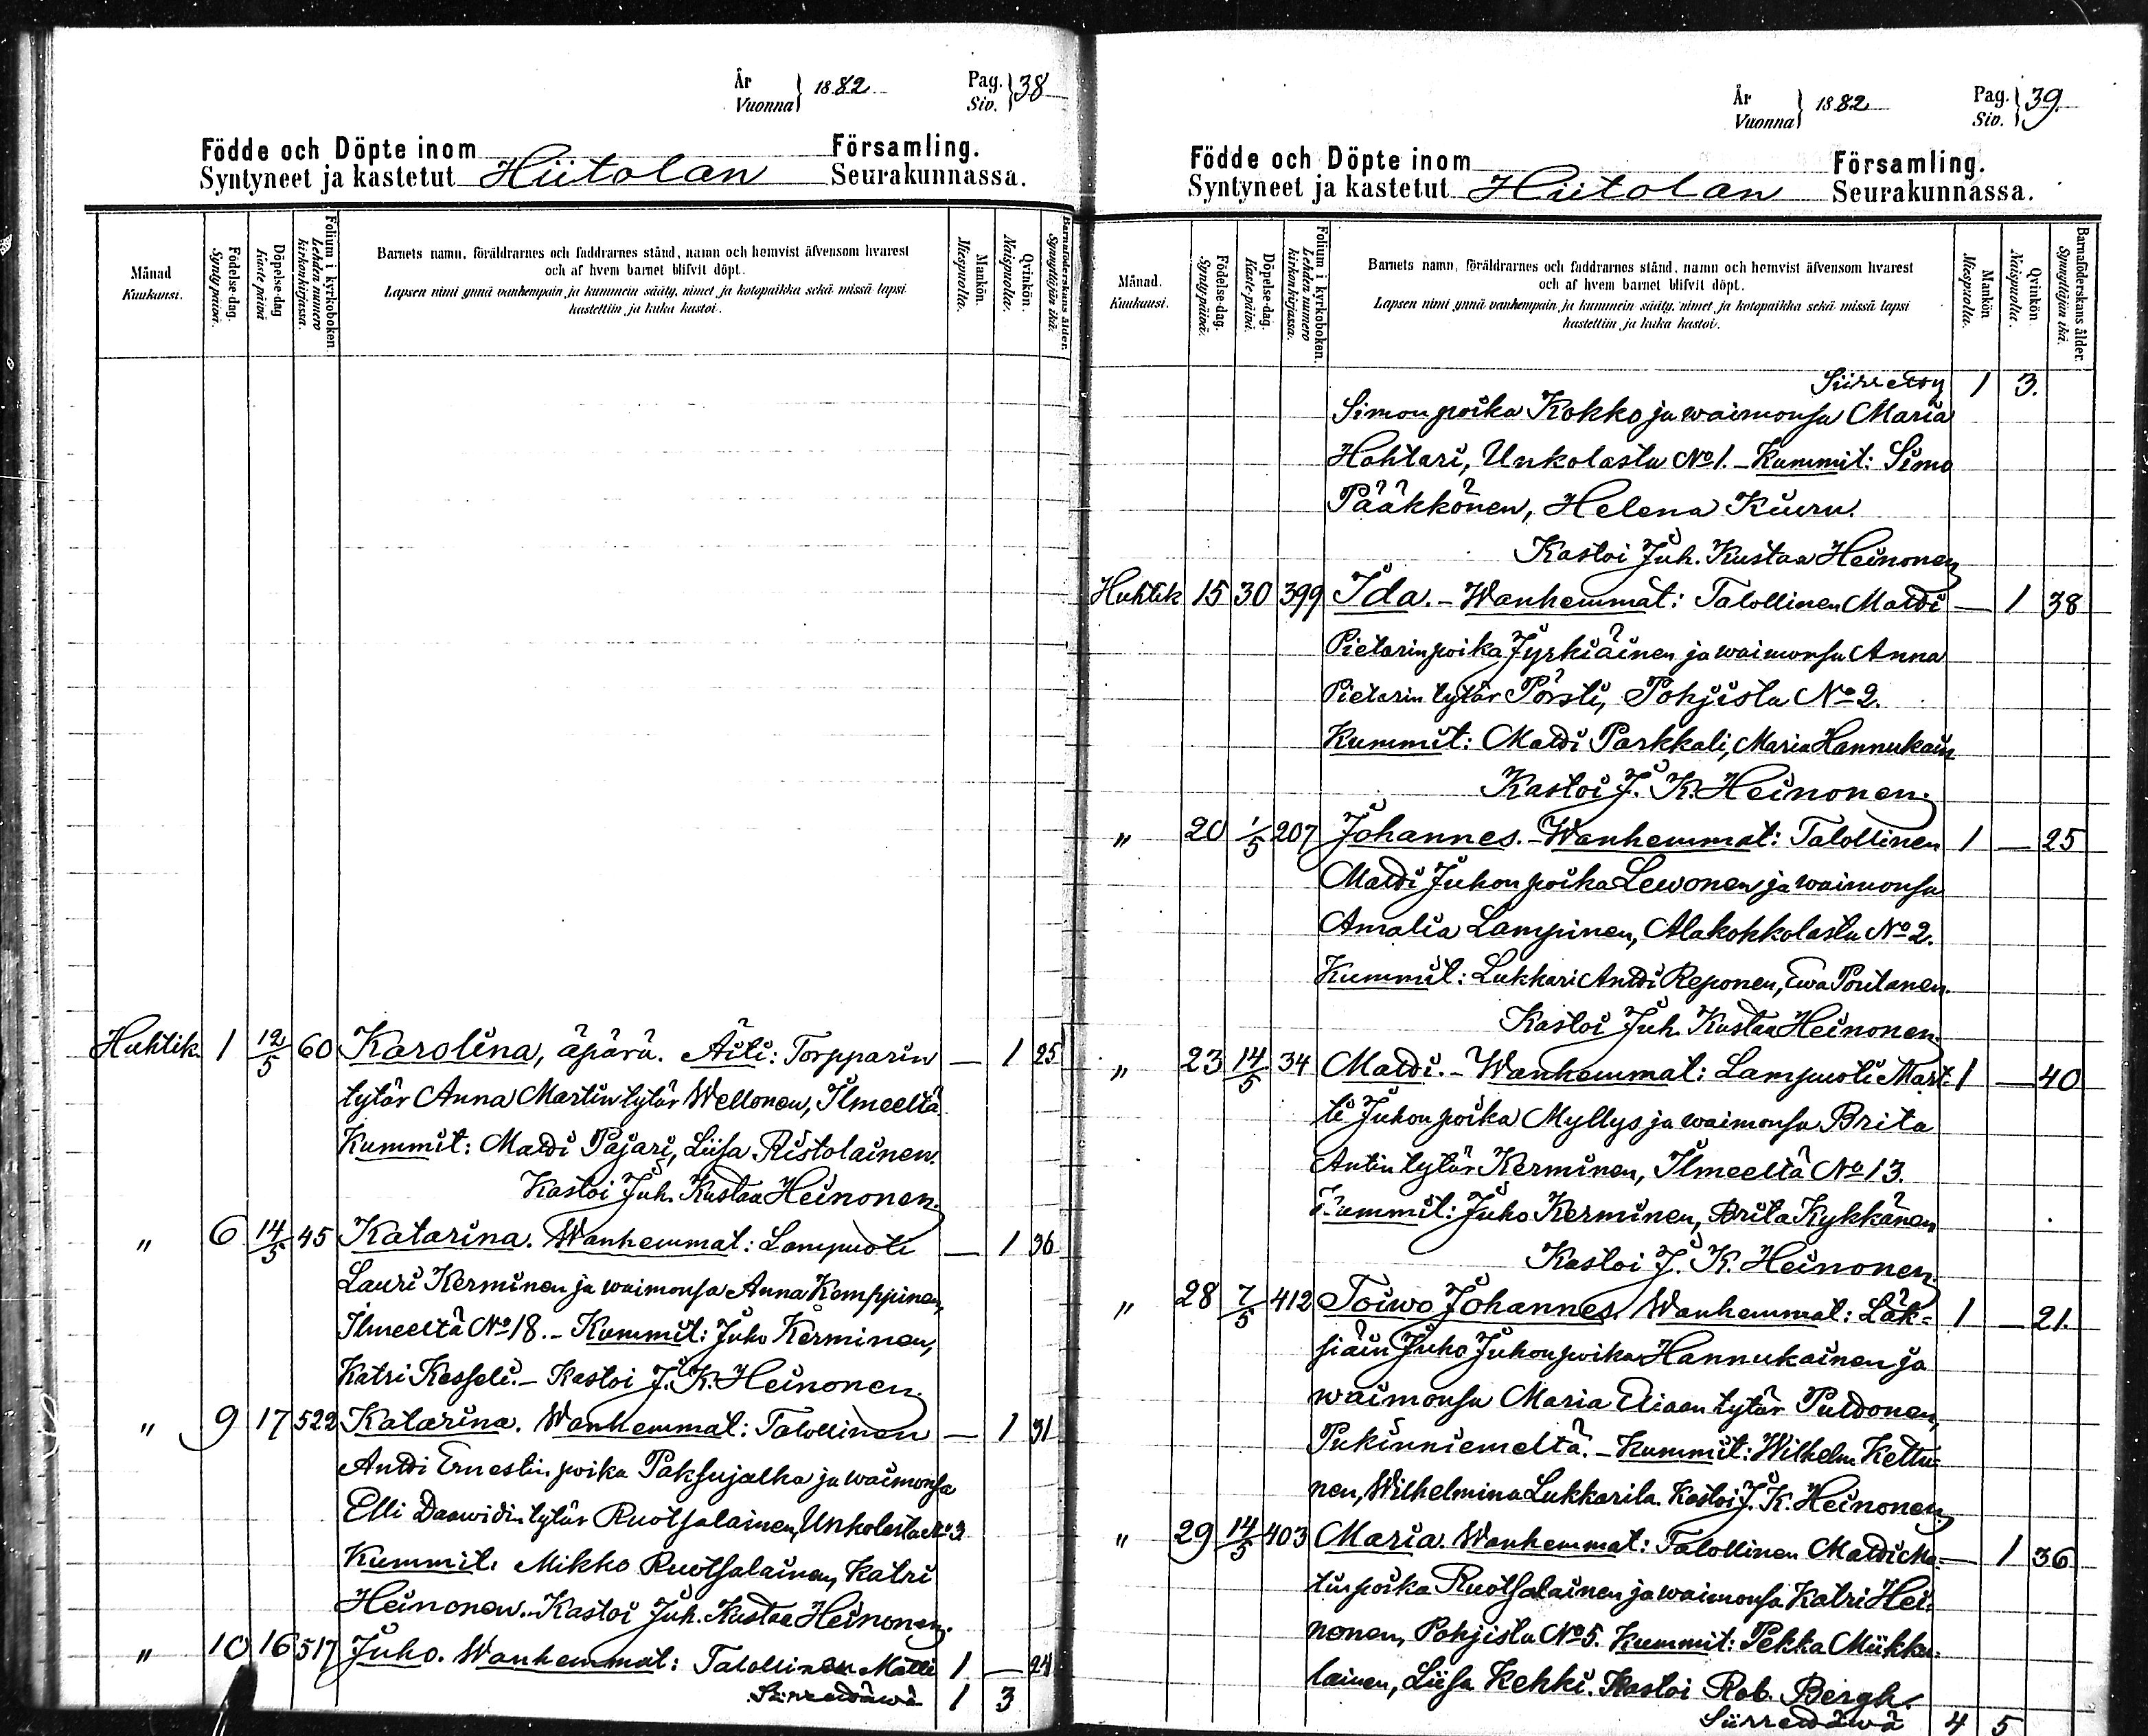 År
Vuonna } 1882
Pag.
Siv. } 38
Födde och Döpte inom Församling.
Syntyneet ja kastetut Hiitolan Seurakunnassa.
Månad
Kuukausi.
Födelse-dag.
Synty-päivä.
Döpelse-dag
Kaste-päivä
Folium i kyrkoboken.
Lehden numero
kirkonkirjassa.
Barnets namn, föräldrarnes och faddrarnes stånd, namn och hemvist äfvensom hvarest
och af hvem barnet blifvit döpt.
Lapsen nimi ynnä vanhempain ja kummein sääty, nimet ja kotopaikka sekä missä lapsi
kastettiin ja kuka kastoi.
Mankön.
Miespuolia.
Qvinkön.
Naispuolia.
Barnaföderskans ålder.
Synnyttäjän ikä.
Huhtik. 1 12/5 60 Karolina, äpärä. Äiti: Torpparin — 1 25
tytär Anna Martintytär Wellonen, Ilmeeltä
Kummit: Matti Pajari, Liisa Ristolainen.
Kastoi Juh. Kustaa Heinonen.
" 6 14/5 45 Katarina. Wanhemmat: Lampuoti — 1 36
Lauri Kerminen ja waimonsa Anna Kemppinen,
Ilmeeltä No 18. - Kummit: Juho Kerminen,
Katri Kesseli. - Kastoi J. K. Heinonen.
" 9 17 522 Katarina. Wanhemmat: Talollinen — 1 31
Antti Ernestin poika Paksujalka ja waimonsa
Elli Daawidin tytär Ruotsalainen, Unkolasta No 3
Kummit: Mikko Ruotsalainen, Katri
Heinonen. - Kastoi Juh. Kustaa Heinonen.
" 10 16 517 Juho. Wanhemmat: Talollinen Matti 1 — 24
Siirrettävä 1 3
År
Vuonna } 1882
Pag.
Siv. } 39.
Födde och Döpte inom Församling.
Syntyneet ja kastetut Hiitolan Seurakunnassa.
Månad.
Kuukausi.
Födelse-dag.
Synty-päivä.
Döpelse-dag.
Kaste-päivä.
Folium i kyrkoboken.
Lehden numero
kirkonkirjassa.
Barnets namn, föräldrarnes och faddrarnes stånd, namn och hemvist äfvensom hvarest
och af hvem barnet blifvit döpt.
Lapsen nimi ynnä vanhempain ja kummein sääty, nimet ja kotopaikka sekä missä lapsi
kastettiin ja kuka kastoi.
Mankön
Miespuolia.
Qvinkön.
Naispuolia.
Barnaföderskans ålder.
Synnyttäjän ikä.
Siirretty 1 3.
Simon poika Kokko ja waimonsa Maria
Hohtari, Unkolasta No 1. - Kummit: Simo
Pääkkönen, Helena Kiuru.
Kastoi Juh. Kustaa Heinonen
Huhtik 15 30 399 Ida. - Wanhemmat: Talollinen Matti — 1 38
Pietarinpoika Jyrkiäinen ja waimonsa Anna
Pietarin tytär Pörsti, Pohjista No 2.
Kummit: Matti Parkkali, Maria Hannukain
Kastoi J. K. Heinonen.
" 20 1/5 207 Johannes. - Wanhemmat: Talollinen 1 — 25
Matti Juhon poika Lewonen ja waimonsa
Amalia Lampinen, Alakokkolasta No 2.
Kummit: Lukkari Antti Reponen, Ewa Poutanen.
Kastoi Juh. Kustaa Heinonen.
" 23 14/5 34 Matti. - Wanhemmat: Lampuoti Mart- 1 — 40
ti Juhon poika Myllys ja waimonsa Brita
Antin tytär Kerminen, Ilmeeltä No 13.
Kummit: Juho Kerminen, Brita Kykkänen
Kastoi J. K. Heinonen.
" 28 7/5 412 Toiwo Johannes. Wanhemmat: Läk- 1 — 21.
siäin Juho Juhonpoika Hannukainen ja
waimonsa Maria Aiaan tytär Puttonen,
Pukinniemeltä. - Kummit: Wilhelm Kettu-
nen, Wilhelmina Lukkarila. Kastoi J. K. Heinonen.
" 29 14/5 403 Maria. Wanhemmat: Talollinen Matti Ma- — 1 36
tinpoika Ruotsalainen ja waimonsa Katri Hei-
nonen, Pohjista No 5. Kummit: Pekka Mükku-
lainen, Liisa Kehki. Kastoi Rob. Bergh.
Siirrettävä 4 5